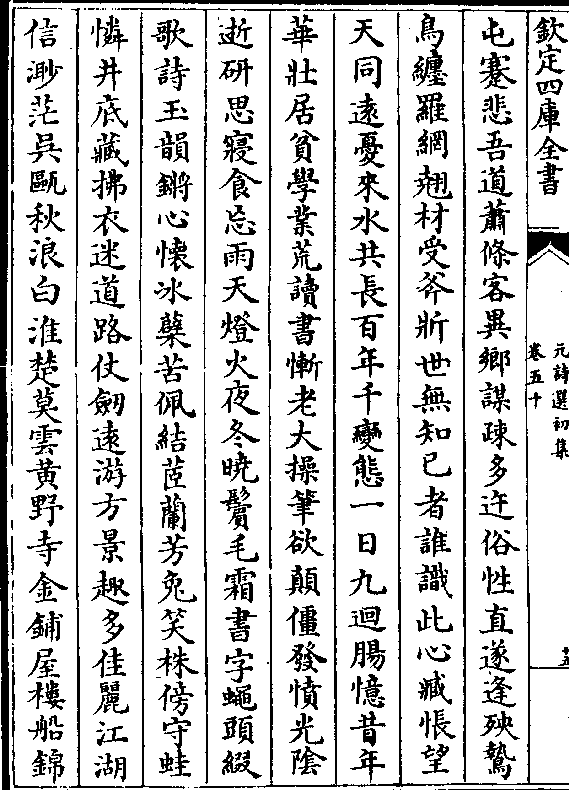 欽定四庫全書
元詩選初集
卷五十
屯蹇悲吾道蕭條客異鄉謀疎多迕俗性直遂逢殃鷙
鳥纏羅網翹材受斧斨世無知己者誰識此心臧悵望
天同遠憂來水共長百年千變態一日九迴腸憶昔年
華壯居貧學業荒讀書慚老大操筆欲顛僵發憤光陰
逝研思寢食忘雨天燈火夜冬曉鬢毛霜書字蠅頭綴
歌詩玉韻鏘心懷冰蘗苦佩結茝蘭芳兔笑株傍守蛙
憐井底藏拂衣迷道路仗劒遠游方景趣多佳麗江湖
信渺茫吳甌秋浪白淮楚莫雲黄野寺金鋪屋樓船錦